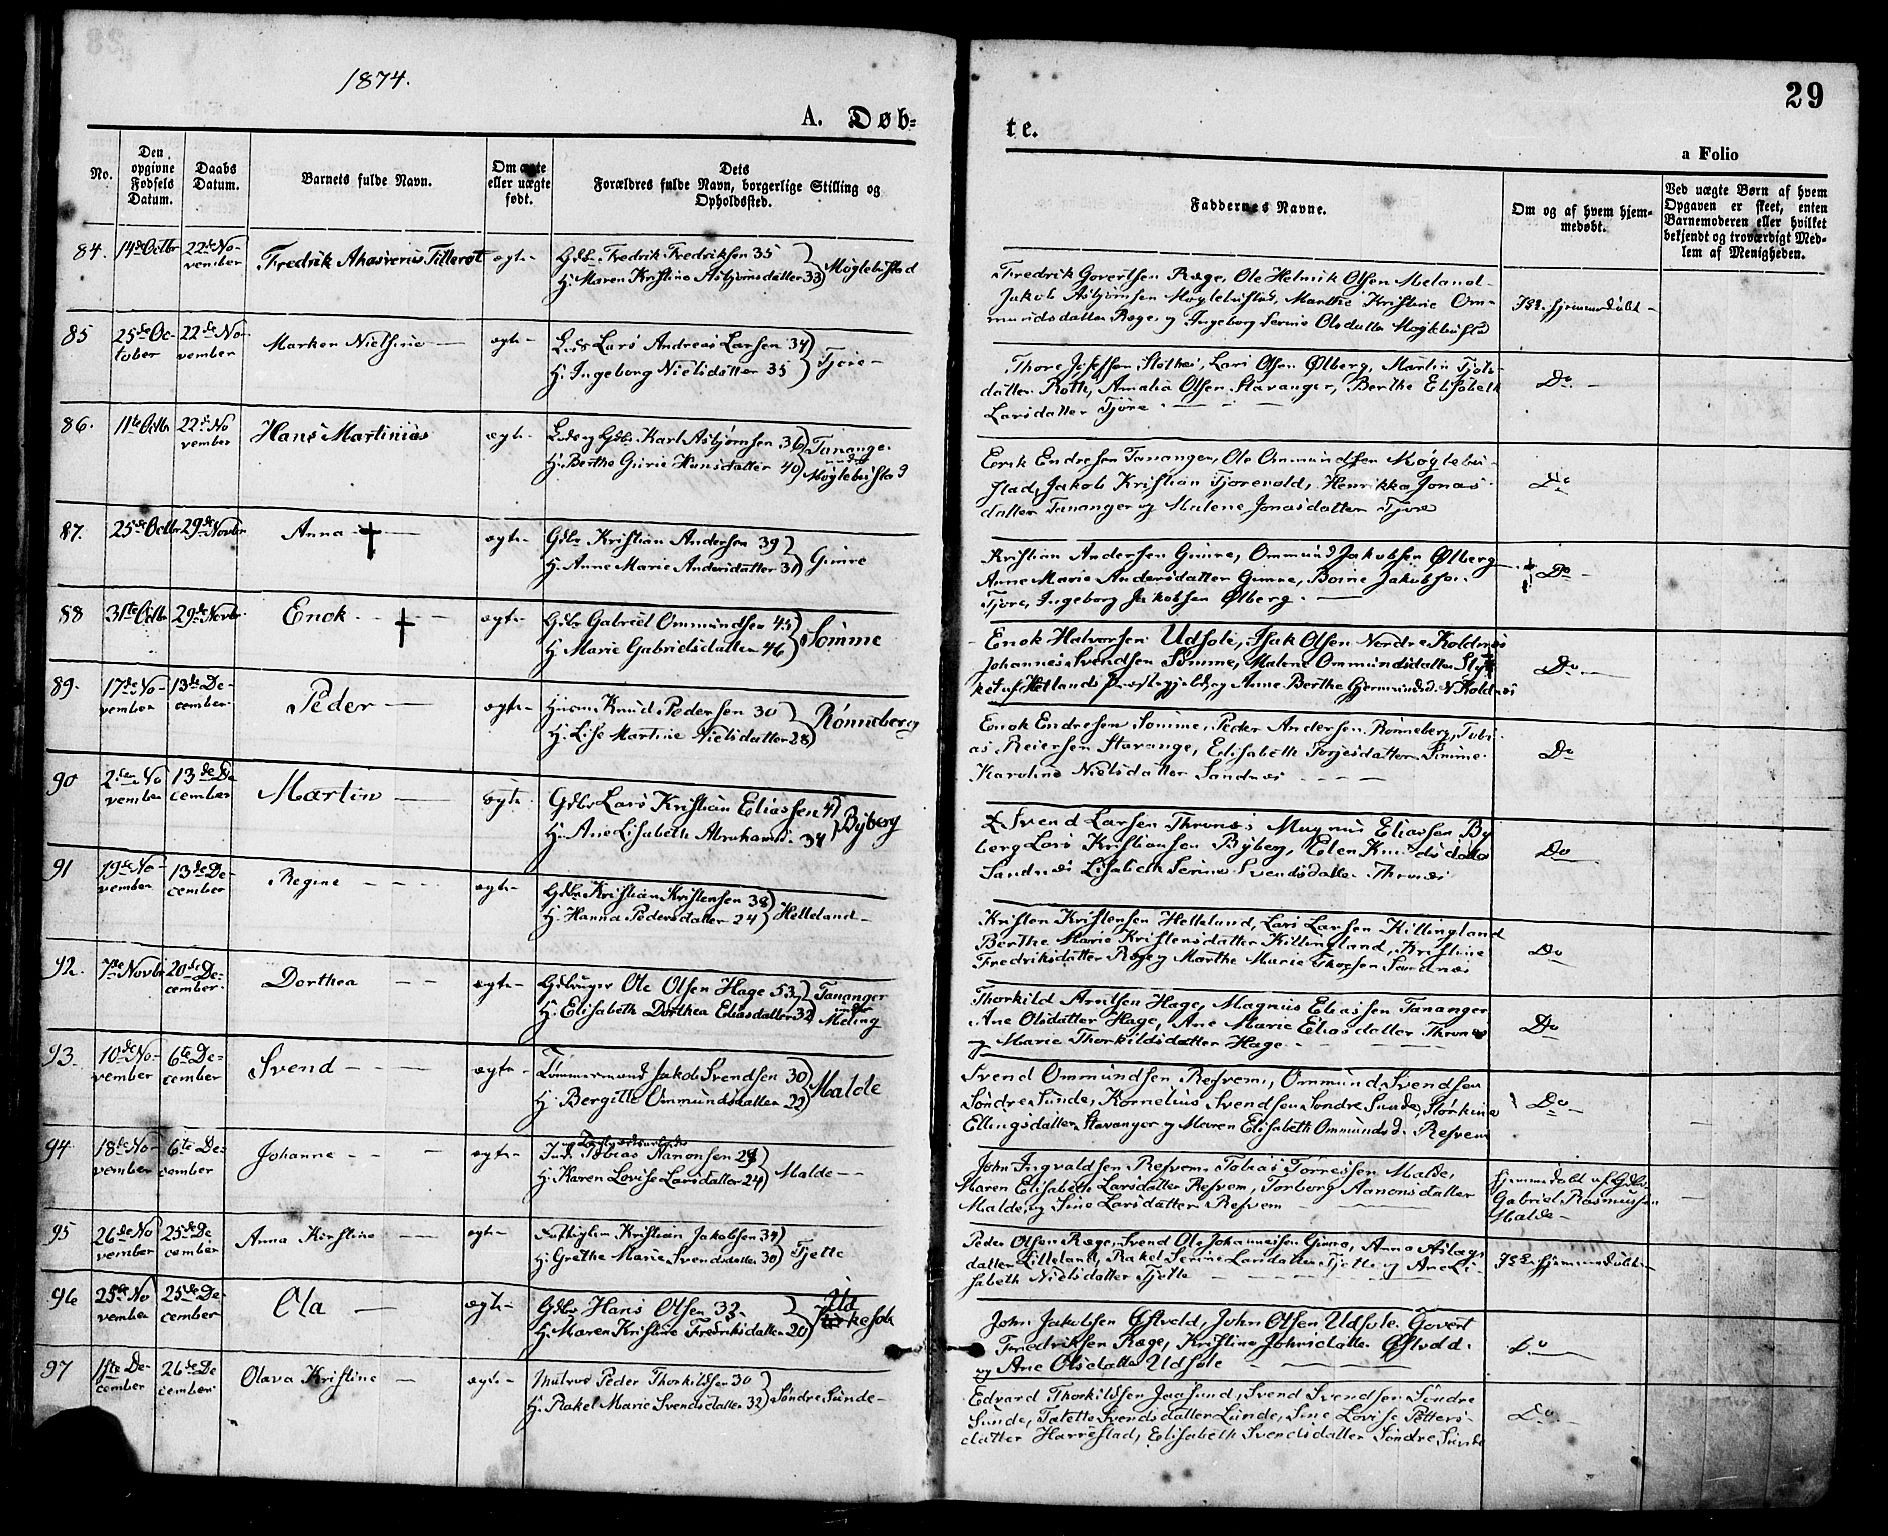 1874.
29
A. Døb=
te.
a Folio
No.
Den opgivne Fødsels Datum.
Daabs Datum.
Barnets fulde Navn.
Om ægte eller uægte født.
Dets Forældres fulde Navn, borgerlige Stilling og Opholdssted.
Faddernes Navne.
Om og af hvem hjem-
medøbt.
Ved uægte Børn af hvem
Opgaven er skeet, enten
Barnemoderen eller hvilket
bekjendt og troværdigt Med-
lem af Menigheden.
84. 14de Octbr 22de No-
vember
Fredrik Ahasverus Tillerøt ægte-
Gdbr Fredrik Fredriksen 35
H. Maren Kristine Asbjørnsdatter 33 Møglebustad
Fredrik Govertsen Ræge, Ole Helmik Olsen Meland
Jakob Asbjørnsen Møglebustad, Marthe Kristine Om-
mundsdatter Ræge, og Ingeborg Serine Olsdatter Møglebustad
Ikke hjemmedøbt-
85 25de Oc-
tober 22de No-
vember
ægte-
Lars Andreas Larsen 34
H. Ingeborg Nielsdatter 35 Tjore-
Thore Josefsen Olsen Ølberg, Martin
datter Roth, Amalia Olsen Stavanger, Berthe Elisabeth
Larsdatter Tjore
Do -
86. 11te Octbr 22de No
vember
Hans Martinius ægte-
Lods og Gdbr Karl Asbjørnsen 36 Tananger
H. Berthe Gurie Hansdatter 40 Møglebustad
Erik Endresen Tananger, Ole Ommundsen Møglebu-
stad, Jakob Kristian Tjorevold, Henrikka Jonas-
datter Tananger og Malene Jonasdatter Tjore
Do
87. 25de Octbr 29de Novbr
Anna † ægte-
Gdbr Kristian Andersen 39
H. Anne Marie Andersdatter 31 Gimre
Kristian Andersen Gimre, Ommund Jakobsen Ølberg
Anne Marie Andersdatter Gimre, Jakobsen
Tjore, Ingeborg Jakobsen Ølberg.
Do -
88 31te Octbr 29de Novbr.
Enok † ægte-
Gdbr Gabriel Ommundsen 45
H. Marie Gabrielsdatter 46 Sømme
Enok Halvorsen Udsole, Isak Olsen Nordre Koldnes
Johannes Svendsen Sømme, Malene Ommundsdatter Styk
ket af Hetlands Præstegjeld og Anne Berthe Gjermundsd. N. Koldnes
Do -
89. 17de No-
vember 13de De-
cember
Peder ægte-
Huusm. Knud Pedersen 30
H. Lise Martine Nielsdatter 28 Rønneberg
Enok Endresen Sømme, Peder Andersen Rønneberg, Tobi-
as Reiersen Stavange, Elisabeth Torjesdatter Sømme
Karoline Nielsdatter Sandnes
Do
90 2den No
vember 13de De
cember
Martin ægte
Gdbr Lars Kristian Eliassen 41
H. Ane Lisabeth Abrahamsd. 34 Byberg
Svend Larsen Thrones Magnus Eliassen By
berg Lars Kristiansen Byberg, Elen Knudsdatter
Sandnes Lisabeth Serine Svendsdatter Thrones
Do
91 19de No-
vember 13de De-
cember
Regine ægte-
Gdbr Kristian Kristensen 38
H. Hanna Pedersdatter 24 Helleland-
Kristen Kristensen Helleland, Lars Larsen Killingland
Berthe Marie Kristensdatter Killingland, Kristine
Fredriksdatter Ræge og Marthe Marie Thorsen Sandnes
Do
92. 7de Novbr 20de De-
cember
Dorthea ægte-
Gdbruger Ole Olsen Hage 53
H. Elisabeth Dorthea Eliasdatter 32 Tananger
under
Meling
Thorkild Arntsen Hage, Magnus Eliassen Tananger
Ane Olsdatter Hage, Ane Marie Eliasdatter Thrones
og Marie Thorkildsdatter Hage
Do
93. 10de No-
vember 6te De-
cember
Svend ægte-
Tømmermand Jakob Svendsen 30
H. Bergitte Ommundsdatter 22 Malde
Svend Ommundsen Refvem, Ommund Svendsen
Søndre Sunde, Kornelius Svendsen Søndre Sunde, Størkine
Ellingsdatter Stavanger og Maren Elisabeth Ommundsd. Refvem
Do -
94 18de No-
vember 6te De-
cember
Johanne ægte-
Tobias Aanonsen 29
H. Karen Lovise Larsdatter 24 Malde-
John Ingvaldsen Refvem, Tobias Tørressen Malde,
Maren Elisabeth Larsdatter Refvem, Torborg Aanonsdatter
Malde, og Sine Larsdatter Refvem
Hjemmedøbt af Gdbr
Gabriel Rasmussen
Malde-
95 26de No
vember 25de De
cember
Anna Kirstine ægte-
Kristian Jakobsen 34
H. Grethe Marie Svendsdatter 30 Tjette
Peder Olsen Ræge, Svend Ole Johannesen Gimre, Anna Aslags-
datter Litleland, Rakel Serine Larsdatter Tjette og Ane Li-
sabeth Nielsdatter Tjette
Ikke hjemmedøbt-
96 25de No
vember 25de De-
cember
Ola ægte-
Gdbr Hans Olsen 32
H. Maren Kristine Fredriksdatter 20 Ud
Kirkesole
John Jakobsen Østvold, John Olsen Udsole. Govert
Fredriksen Ræge, Kristine Johnsdatter Østvold.
og Ane Olsdatter Udsole
Do
97 1ste De-
cember 26de De
cember
Olava Kristine ægte-
Matros Peder Thorkildsen 30
H. Rakel Marie Svendsdatter 32 Søndre Sunde-
Edvard Thorkildsen Jaasund, Svend Svendsen Søndre
Sunde, Tætette Svendsdatter Sunde, Sine Lovise Petters-
datter Harrestad, Elisabeth Svendsdatter Søndre Sunde
Do -